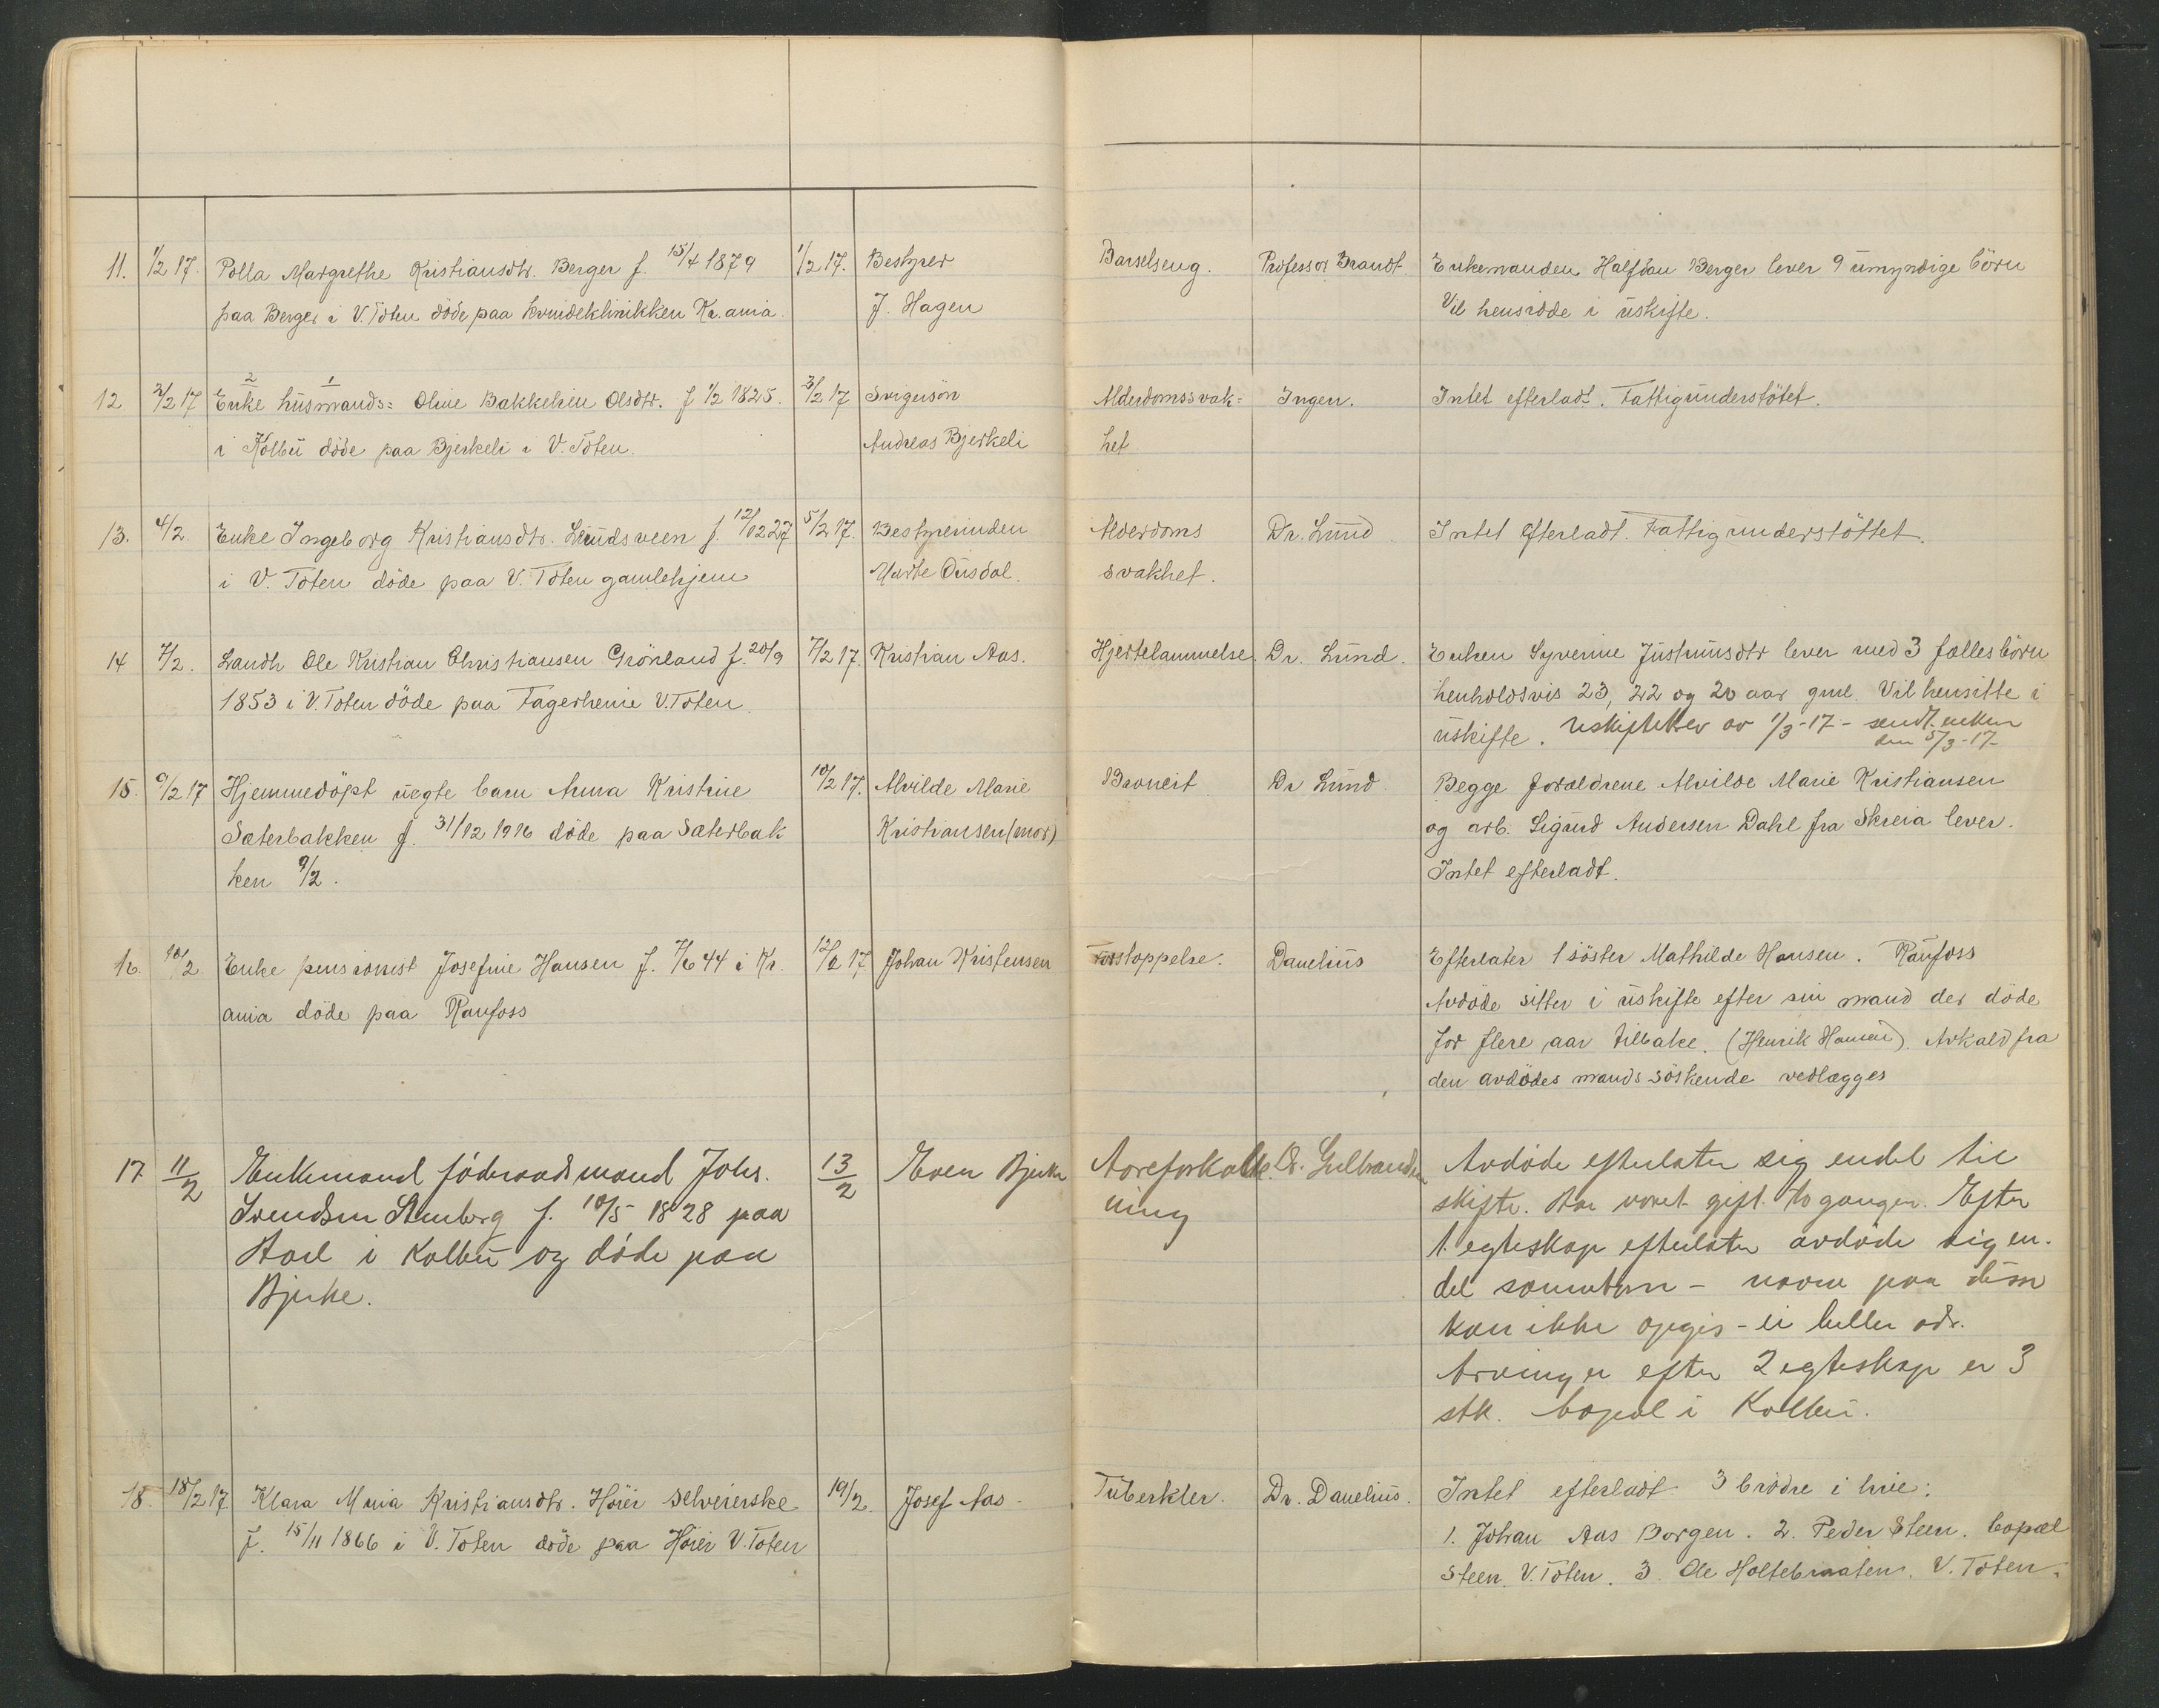 11. 1/2 17. Polla Margrethe Kristiansdtr. Berger f. 15/4 1879 1/2 17. Bestyrer Barselseng. Professor Brandt. Enkemanden Halfdan Berger lever 9 umyndige börn
paa Berger i V. Toten döde paa kvindeklinikken Kr.ania. J. Hagen Vil hensidde i uskifte.
2 1
12 2/2 17 Enke husmands= Oline Bakkelien Olsdtr. f 1/2 1825. 3/2 17 Svigersön Alderdomssvak= Ingen. Intet efterladt. Fattigunderstötet.
i Kolbu döde paa Bjerkeli i V. Toten. Andreas Bjerkeli het
13. 4/2. Enke Ingeborg Kristiansdtr. Lundsveen f. 12/12 27 5/2 17. Bestyrerinden Alderdoms Dr. Lund. Intet efterladt. Fattigunderstöttet.
i V. Toten döde paa V. Toten gamlehjem Marte svakhet.
14 7/2. Landh Ole Kristian Christiansen Grönland f. 20/9 7/2 17. Kristian Aas. Hjertelammelse. Dr. Lund. Enken Syverine Justinusdtr lever med 3 fælles börn
1853 i V. Toten döde paa Fagerheim V. Toten. henholdsvis 23, 22 og 20 aar gml. Vil hensitte i
uskifte. Uskiftebrev av 1/3-17- sendt enken
den 5/3-17-
15. 9/2 17 Hjemmedöpt uegte barn Anna Kristine 10/2 17. Alvilde Marie Bronkit Dr Lund. Begge forældrene Alvilde Marie Kristiansen
Sæterbakken f. 31/12 1916 döde paa Sæterbak Kristiansen (mor) og arb. Sigurd Andersen Dahl fra Skreia lever.
ken 9/2. Intet efterladt.
16. 10/2. Enke pensionist Josefine Hansen f. 7/6 44 i Kr. 12/2 17 Johan Kristensen Forstoppelse. Danelius Efterlater 1 söster Mathilde Hansen. Raufoss
ania döde paa Raufoss Avdöde sitter i uskifte efter sin mand der döde
for flere aar tilbake. (Henrik Hansen). Avkald fra
den avdödes mands söskende vedlægges
17. 11/2 Enkemand föderaadsmand Johs. 13/2 Even Bjerke Aareforkalk- Dr. Gulbrandsen Avdöde efterlater sig endel til
Svendsen Stenberg f. 10/5 1828 paa ning skifte. Har været gift to ganger. Efter
i Kolbu og döde paa 1. egteskap efterlater avdöde sig en-
Bjerke. del - navne paa disse
kan ikke opgis - ei heller adr.
Arvinger efter 2 egteskap er 3
stk. bopæl i Kolbu.
18. 18/2 17 Klara Maria Kristiansdtr. Höier selveierske 19/2. Josef Aas. Tuberkler. Dr. Danelius. Intet efterladt. 3 brödre i live:
f. 15/11 1866 i V. Toten döde paa Höier V. Toten 1. Johan Aas Borgen. 2. Peder Steen. bopæl
Steen V. Toten. 3. Ole Holtebraaten. V. Toten.